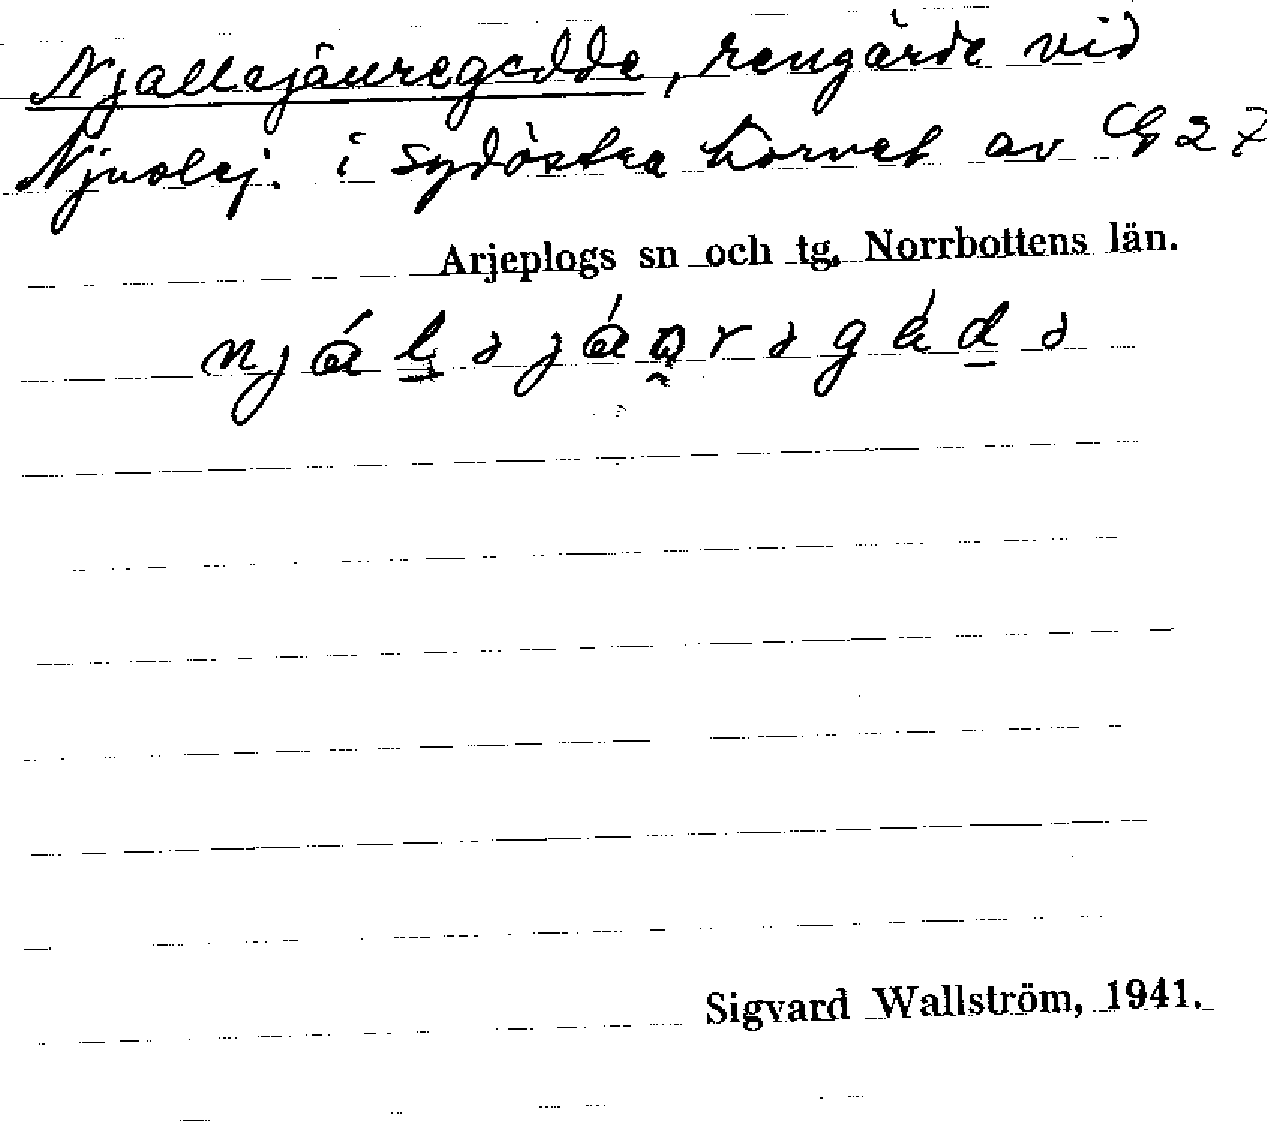 Njallejáuregedde, rengärde vid
Njuolej. i sydöstra hörnet av G 27
Arjeplogs sn och tg, Norrbottens län.
Sigvard Wallström, 1941.